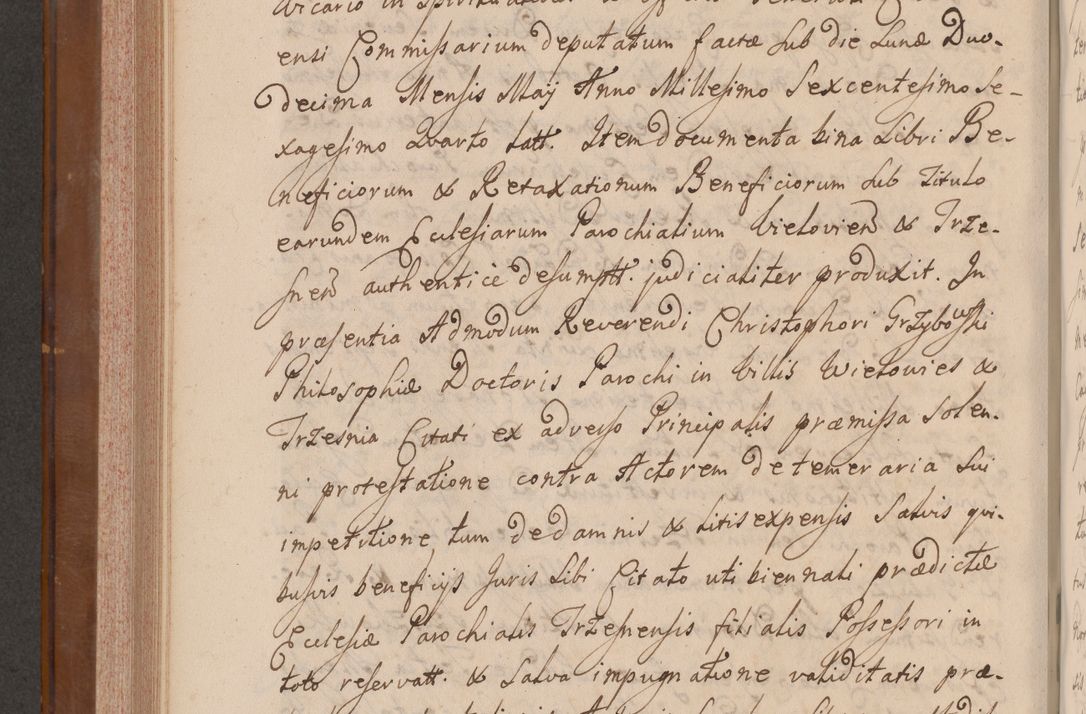 Vicario in Spiritualibus
ensi Commissarium deputatum factæ sub die Lunæ Duo-
decima Mensis Maij Anno Millesimo Sexcentesimo Se-
xagesimo Qvarto Latt. Item documenta bina Libri Be-
neficiorum & Retaxationum Beneficiorum sub Titulo
earundem Ecclesiarum Parochialium Wielovien & Trze-
snen authentice desumptt. judicialiter produxit. In
præsentia Admodum Reverendi Christophori Grzybowski
Philosophiæ Doctoris Parochi in Villis Wielowies &
Trzesnia Citati ex adverso Principalis præmissa solen-
ni protestatione contra Actorem de temeraria sui
impetitione, tum de damnis & litis expensis Salvis qvi-
busvis beneficijs Juris sibi Citato uti biennali prædictæ
Ecclesiæ Parochialis Trzesnensis filialis Possessori in
toto reservatt. & Salva impugnatione validitatis præ-